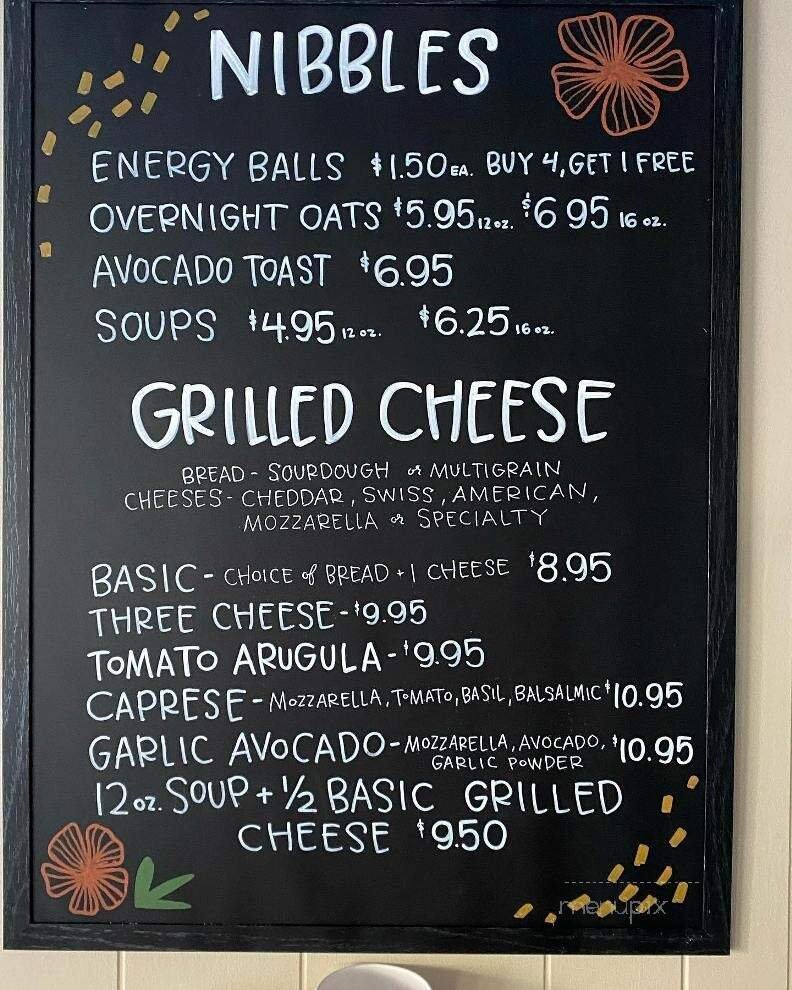 NIBBLES
ENERGY BALLS $1.50 EA. BUY 4, GET 1 FREE
OVERNIGHT OATS $5.95 12 oz. $6 95 16 oz.
AVOCADO TOAST $6.95
SOUPS $4.95 12 oz. $6.25 16 oz.
GRILLED CHEESE
BREAD - SOURDOUGH or MULTIGRAIN
CHEESES - CHEDDAR, SWISS, AMERICAN,
MOZZARELLA or SPECIALTY
BASIC - CHOICE of BREAD + 1 CHEESE $8.95
THREE CHEESE - $9.95
TOMATO ARUGULA - $9.95
CAPRESE - MOZZARELLA, TOMATO, BASIL, BALSALMIC $10.95
GARLIC AVOCADO - MOZZARELLA, AVOCADO, $10.95
GARLIC POWDER
12 oz. SOUP + ½ BASIC GRILLED
CHEESE $9.50
menupix